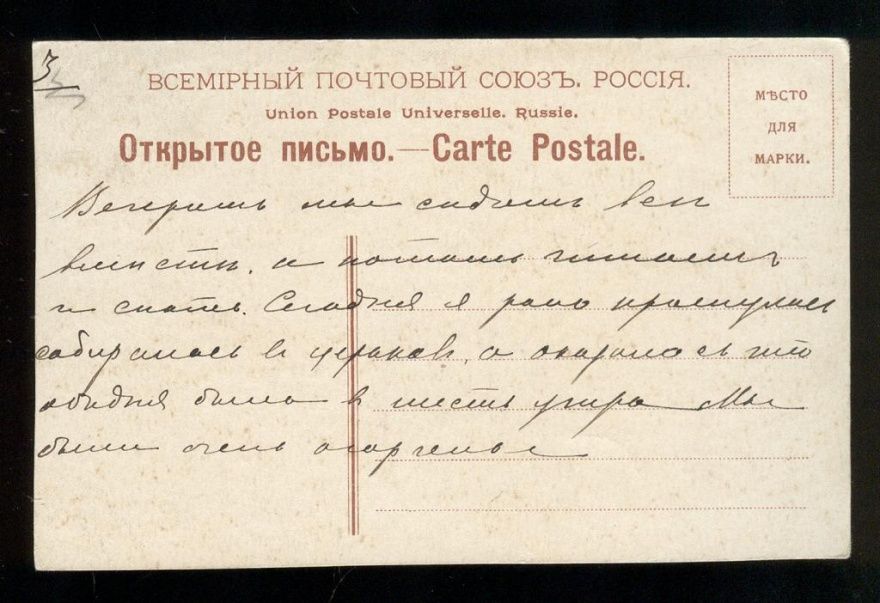 3
ВСЕМІРНЫЙ ПОЧТОВЫЙ СОЮЗЪ. РОССІЯ.
Union Postale Universelle. Russie.
Открытое письмо.—Carte Postale.
МѢСТО
ДЛЯ
МАРКИ.
Вечеромъ мы сидимъ все
вмѣстѣ, а потомъ читаемъ
и спать. Сегодня я рано проснулась
собиралась в церковь, а оказалось что
обѣдня была в шесть утра Мы
были очень огорчены